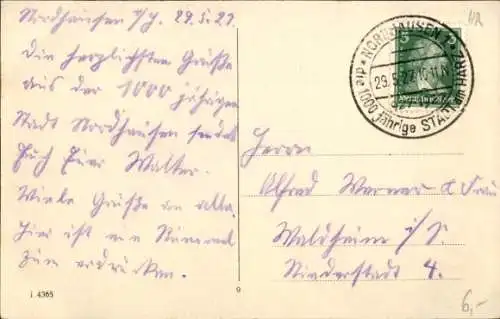 Nordhausen a/H. 29.5.27
Die herzlichsten Grüße
aus der 1000 jährigen
Stadt Nordhausen sendet
Euch Euer Walter.
Viele Grüße an alle.
Hier ist
zum erdrücken.
i 4365
9
NORDHAUSEN
die 1000 jährige STADT am HARZ
29.5.27.10-11 N
5
HR
Herrn
Alfred Werner & Frau
Waldheim i/S.
Niederstadt 4.
6,-